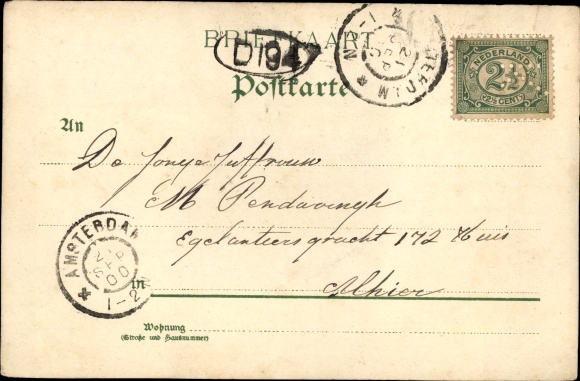 BRIEFKAART
D194
Postkarte
NEDERLAND
2½
2½ CENT
An
De Jonge Juffrouw
M Pendavingh
Egelantiersgracht 172 Huis
in Alhier
AMSTERDAM
21
SEP
00
1-2
Wohnung
(Straße und Hausnummer)